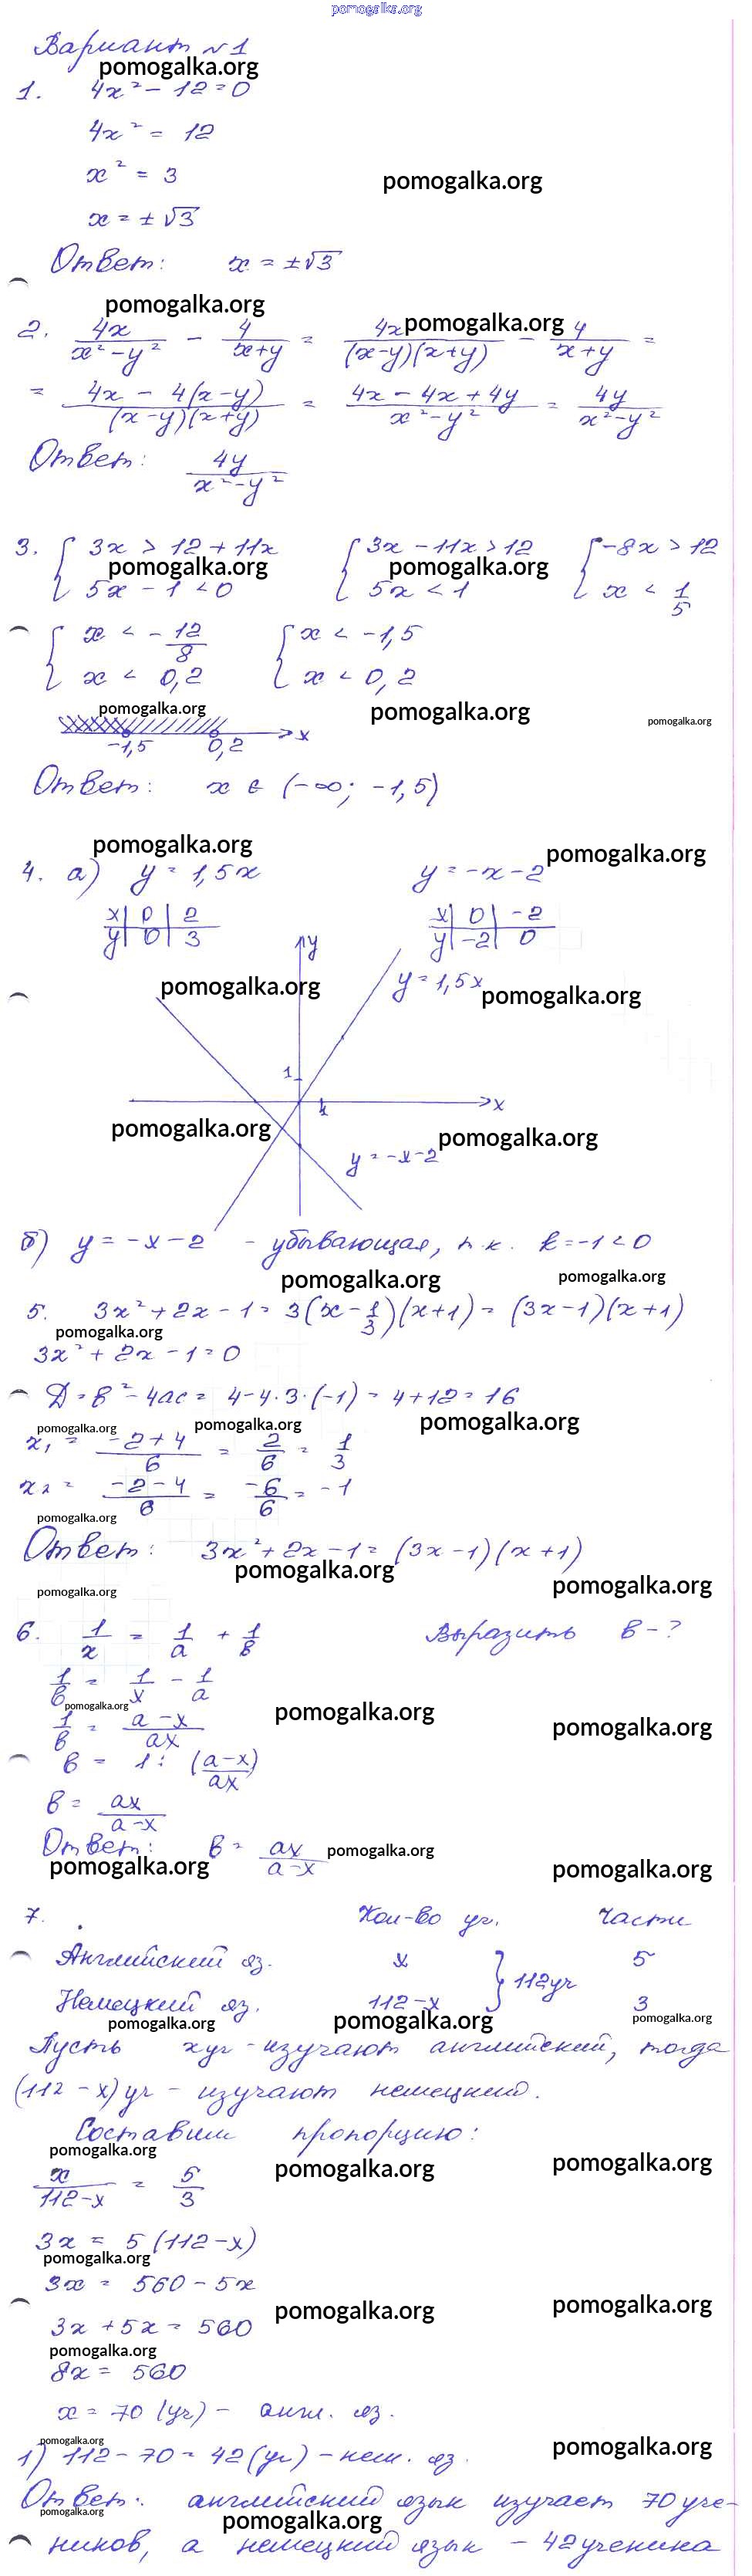 pomogalka.org
Вариант №1
pomogalka.org
1. 4x² − 12 = 0
4x² = 12
x² = 3
pomogalka.org
x = ±√3
Ответ: x = ±√3
pomogalka.org
2. 4x/(x²−y²) − 4/(x+y) = 4x/((x−y)(x+y)) − 4/(x+y) =
pomogalka.org
= (4x − 4(x−y))/((x−y)(x+y)) = (4x − 4x + 4y)/(x²−y²) = 4y/(x²−y²)
Ответ: 4y/(x²−y²)
3. { 3x > 12 + 11x { 3x − 11x > 12 { −8x > 12
pomogalka.org pomogalka.org
5x − 1 < 0 5x < 1 x < 1/5
{ x < −12/8 { x < −1,5
x < 0,2 x < 0,2
pomogalka.org pomogalka.org pomogalka.org
−1,5 0,2 x
Ответ: x ∈ (−∞; −1,5)
pomogalka.org pomogalka.org
4. а) y = 1,5x y = −x−2
x | 0 | 2 x | 0 | −2
y | 0 | 3 y | −2 | 0
y
y = 1,5x
pomogalka.org pomogalka.org
1
1 x
pomogalka.org pomogalka.org
y = −x−2
б) y = −x−2 − убывающая, т.к. k = −1 < 0
pomogalka.org pomogalka.org
5. 3x² + 2x − 1 = 3(x − 1/3)(x+1) = (3x−1)(x+1)
pomogalka.org
3x² + 2x − 1 = 0
Д = в² − 4ac = 4−4·3·(−1) = 4+12 = 16
pomogalka.org pomogalka.org pomogalka.org
x₁ = (−2+4)/6 = 2/6 = 1/3
x₂ = (−2−4)/6 = −6/6 = −1
pomogalka.org
Ответ: 3x² + 2x − 1 = (3x−1)(x+1)
pomogalka.org pomogalka.org
pomogalka.org
6. 1/x = 1/a + 1/в Выразить в − ?
1/в = 1/x − 1/a
pomogalka.org pomogalka.org pomogalka.org
1/в = (a−x)/ax
в = 1 : ((a−x)/ax)
в = ax/(a−x)
Ответ: в = ax/(a−x)
pomogalka.org
pomogalka.org pomogalka.org
7. Кол-во уч. Части
Английский яз. x 5
} 112 уч
Немецкий яз. 112−x 3
pomogalka.org pomogalka.org pomogalka.org
Пусть x уч − изучают английский, тогда
(112 − x) уч − изучают немецкий.
Составим пропорцию:
pomogalka.org pomogalka.org pomogalka.org
x/(112−x) = 5/3
3x = 5(112−x)
pomogalka.org
3x = 560 − 5x
pomogalka.org pomogalka.org
3x + 5x = 560
pomogalka.org
8x = 560
x = 70 (уч) − англ. яз.
pomogalka.org pomogalka.org
1) 112 − 70 = 42 (уч) − нем. яз.
Ответ: английский язык изучает 70 уче-
pomogalka.org pomogalka.org
ников, а немецкий язык − 42 ученика